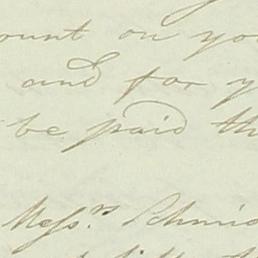 ount on yo
and for y
be paid th
Messrs Schmid